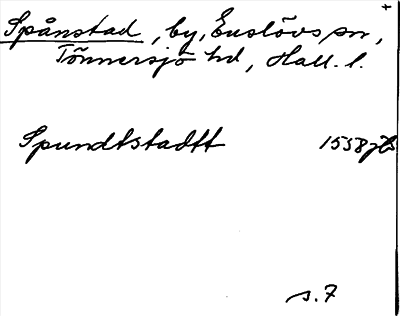 Spånstad, by, Enslövs sn,
Tönnersjö hd, Hall. l.
Spundtstadtt 1558 jb
s. 7